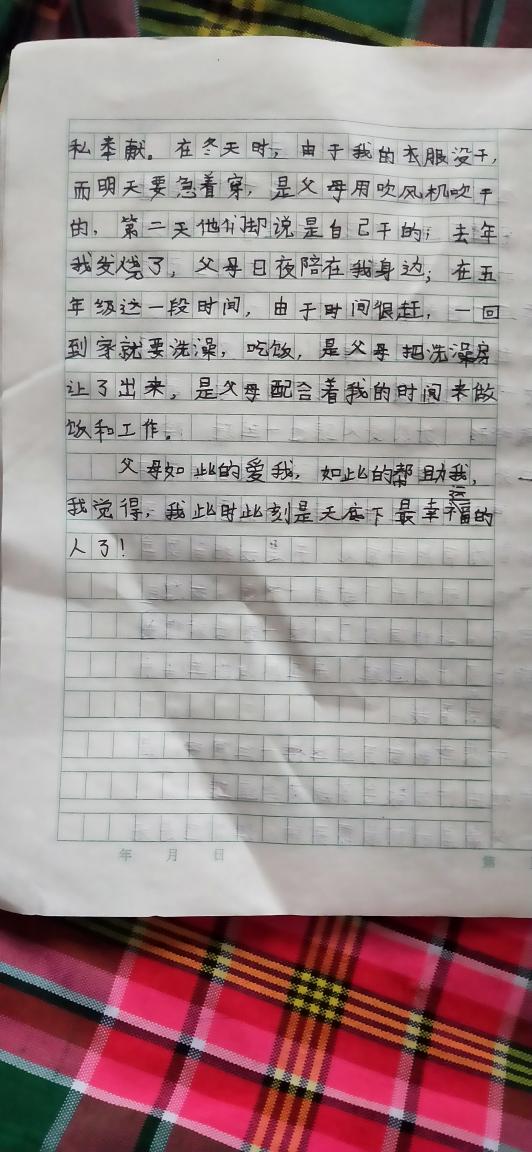 私奉献。在冬天时，由于我的衣服没干，
而明天要急着穿，是父母用吹风机吹干
的，第二天他们却说是自己干的；去年
我发烧了，父母日夜陪在我身边；在五
年级这一段时间，由于时间很赶，一回
到家就要洗澡，吃饭，是父母把洗澡房
让了出来，是父母配合着我的时间来做
饭和工作。
父母如此的爱我，如此的帮助我，
我觉得，我此时此刻是天底下最幸福的
人了！
年 月 日
第